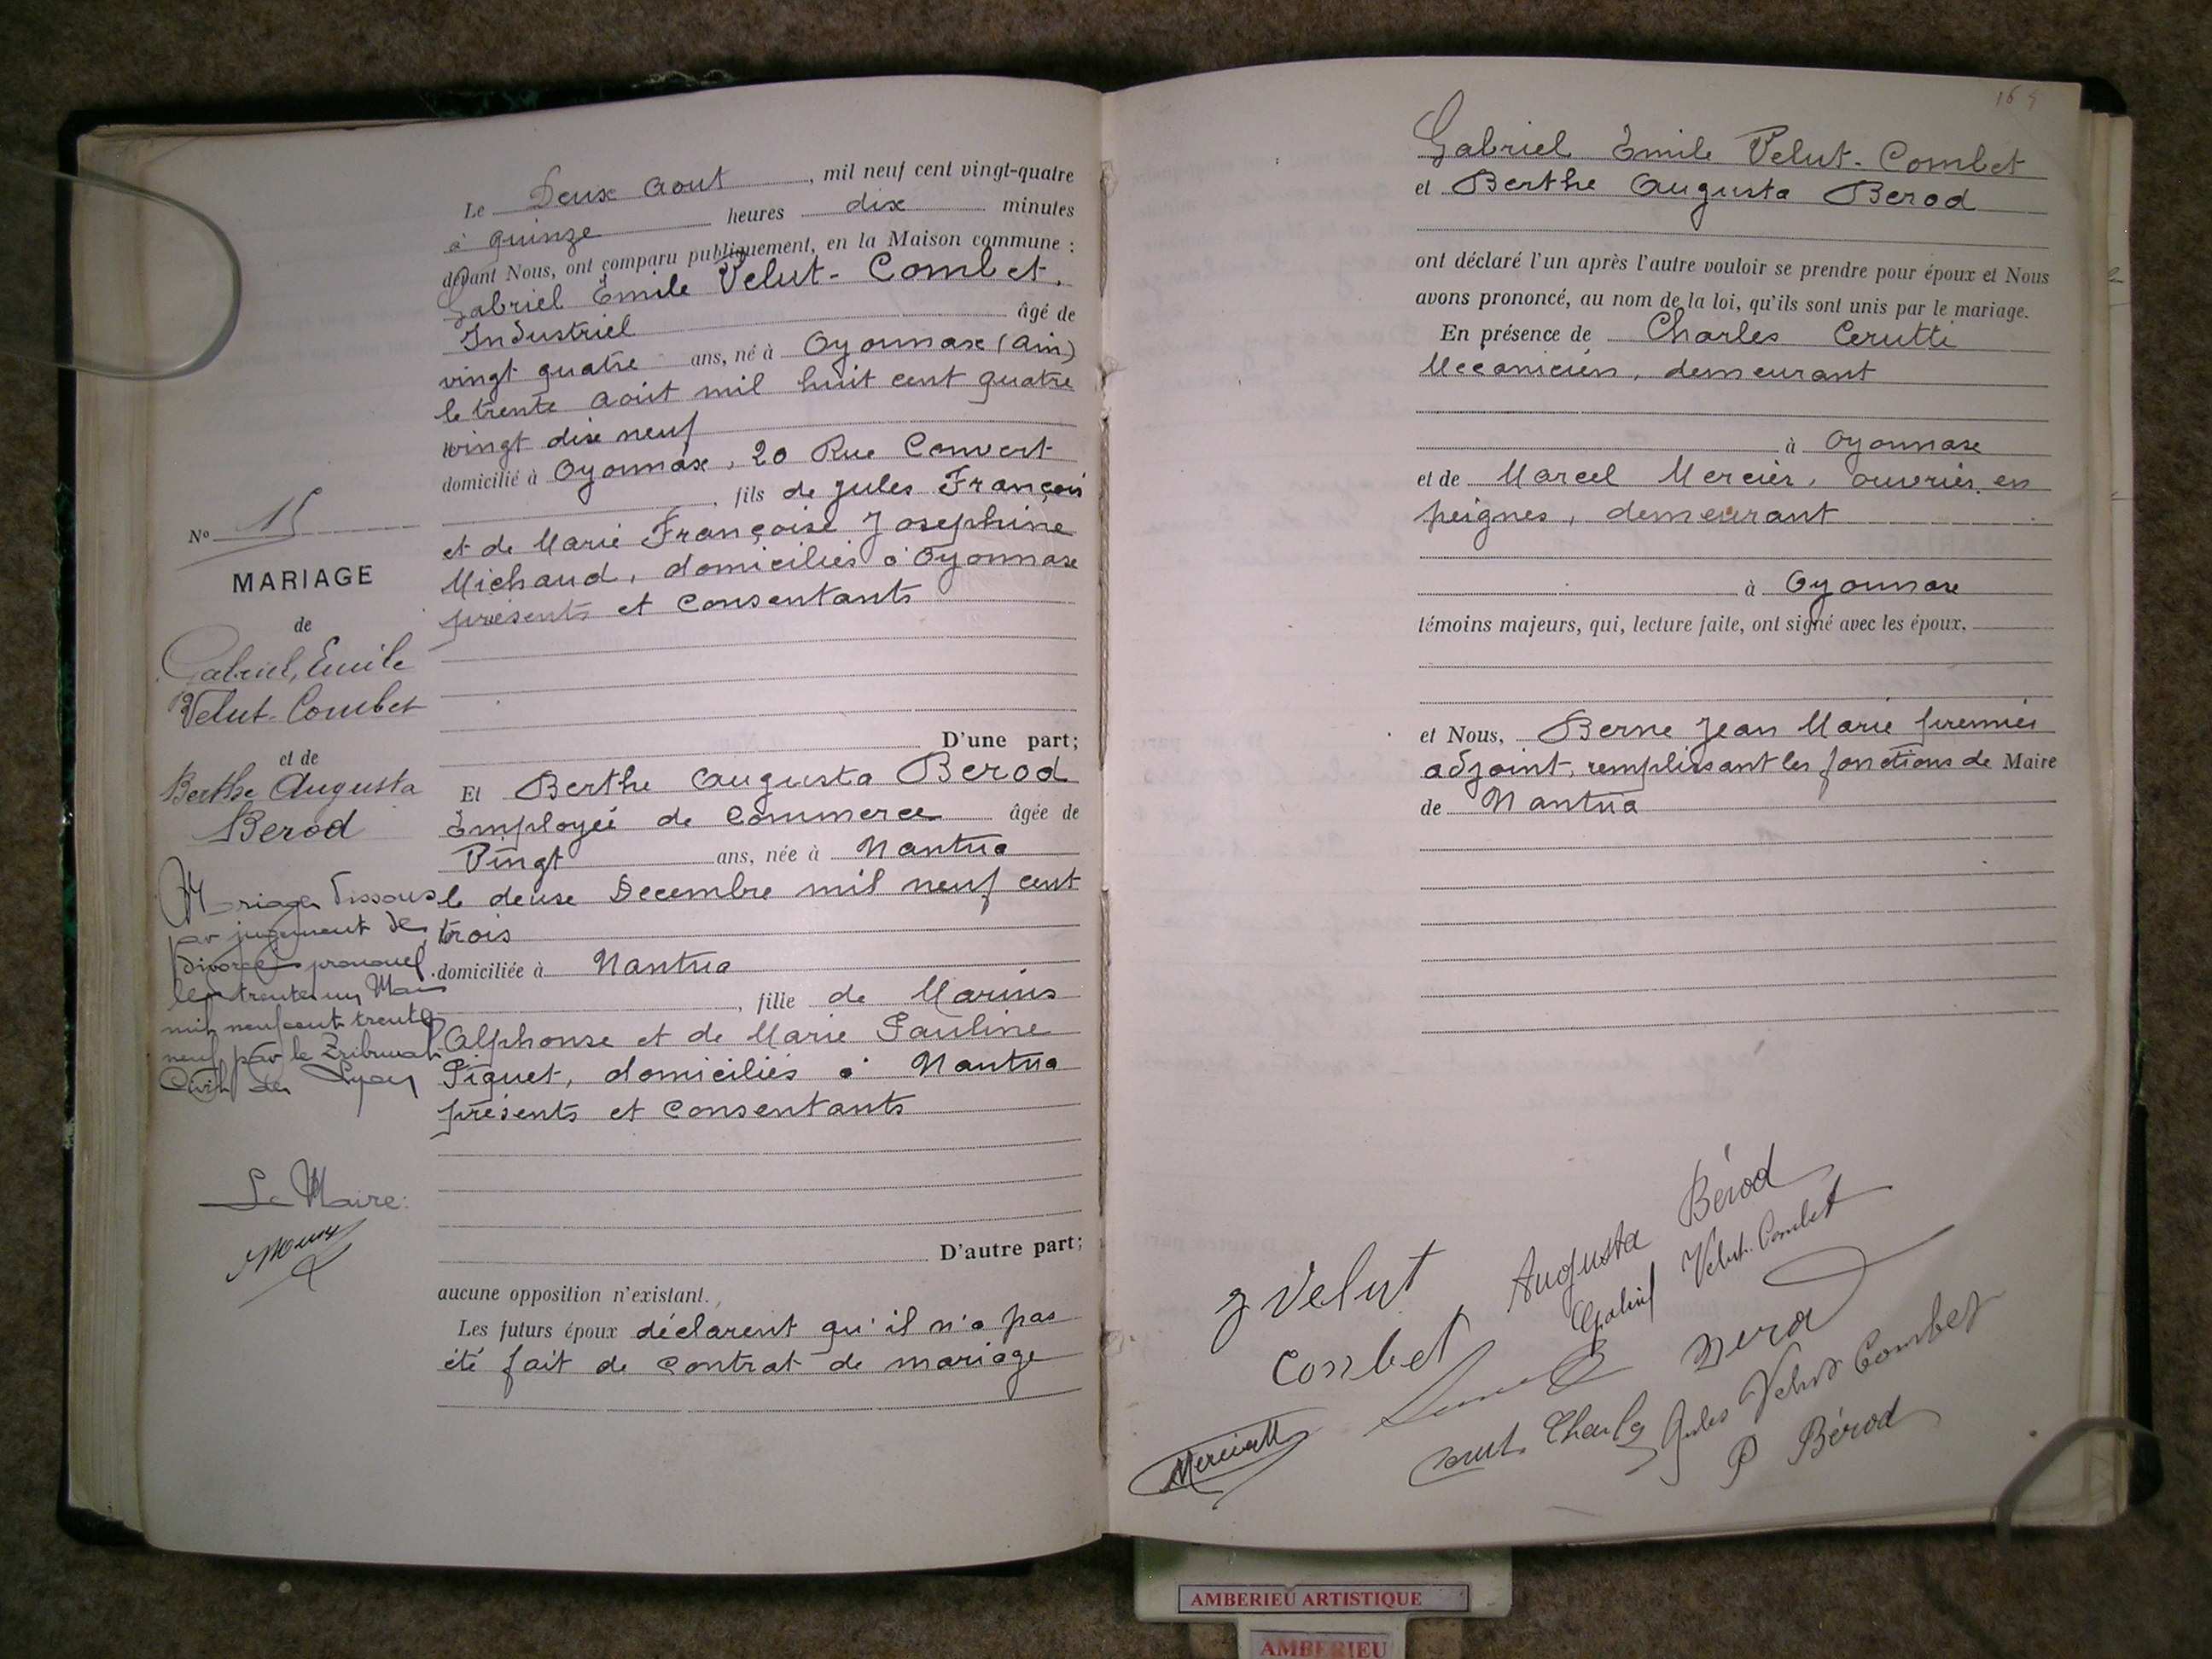 Le Deux Aout, mil neuf cent vingt-quatre
à quinze heures dix minutes
devant Nous, ont comparu publiquement, en la Maison commune :
Gabriel Emile Velut-Combet,
Industriel âgé de
vingt quatre ans, né à Oyonnax (Ain)
le trente Août mil huit cent quatre
vingt dix neuf
domicilié à Oyonnax, 20 Rue Convert
, fils de Jules François
et de Marie Françoise Josephine
Michaud, domiciliés à Oyonnax
présents et consentants
D'une part;
Et Berthe Augusta Berod
Employée de Commerce âgée de
Vingt ans, née à Nantua
le deux Decembre mil neuf cent
trois
domiciliée à Nantua
, fille de Marius
Alphonse et de Marie Pauline
Piguet, domiciliés à Nantua
présents et consentants
D'autre part;
aucune opposition n'existant.
Les futurs époux déclarent qu'il n'a pas
été fait de contrat de mariage
No 15
MARIAGE
de
Gabriel, Emile
Velut-Combet
et de
Berthe Augusta
Berod
Mariage dissous
par jugement de
divorce prononcé
le trente un Mars
mil neuf cent trente
neuf par le Tribunal
Civil de Lyon
Le Maire:
164
Gabriel Emile Velut-Combet
et Berthe Augusta Berod
ont déclaré l'un après l'autre vouloir se prendre pour époux et Nous
avons prononcé, au nom de la loi, qu'ils sont unis par le mariage.
En présence de Charles Cerutti
Mécanicien, demeurant
à Oyonnax
et de Marcel Mercier, ouvrier en
peignes, demeurant
à Oyonnax
témoins majeurs, qui, lecture faite, ont signé avec les époux.
et Nous, Berne Jean Marie premier
adjoint, remplissant les fonctions de Maire
de Nantua
Augusta Bérod
Gabriel Velut-Combet
J Velut
Combet
Jules Velut Combet
P Bérod
AMBERIEU ARTISTIQUE
AMBERIEU